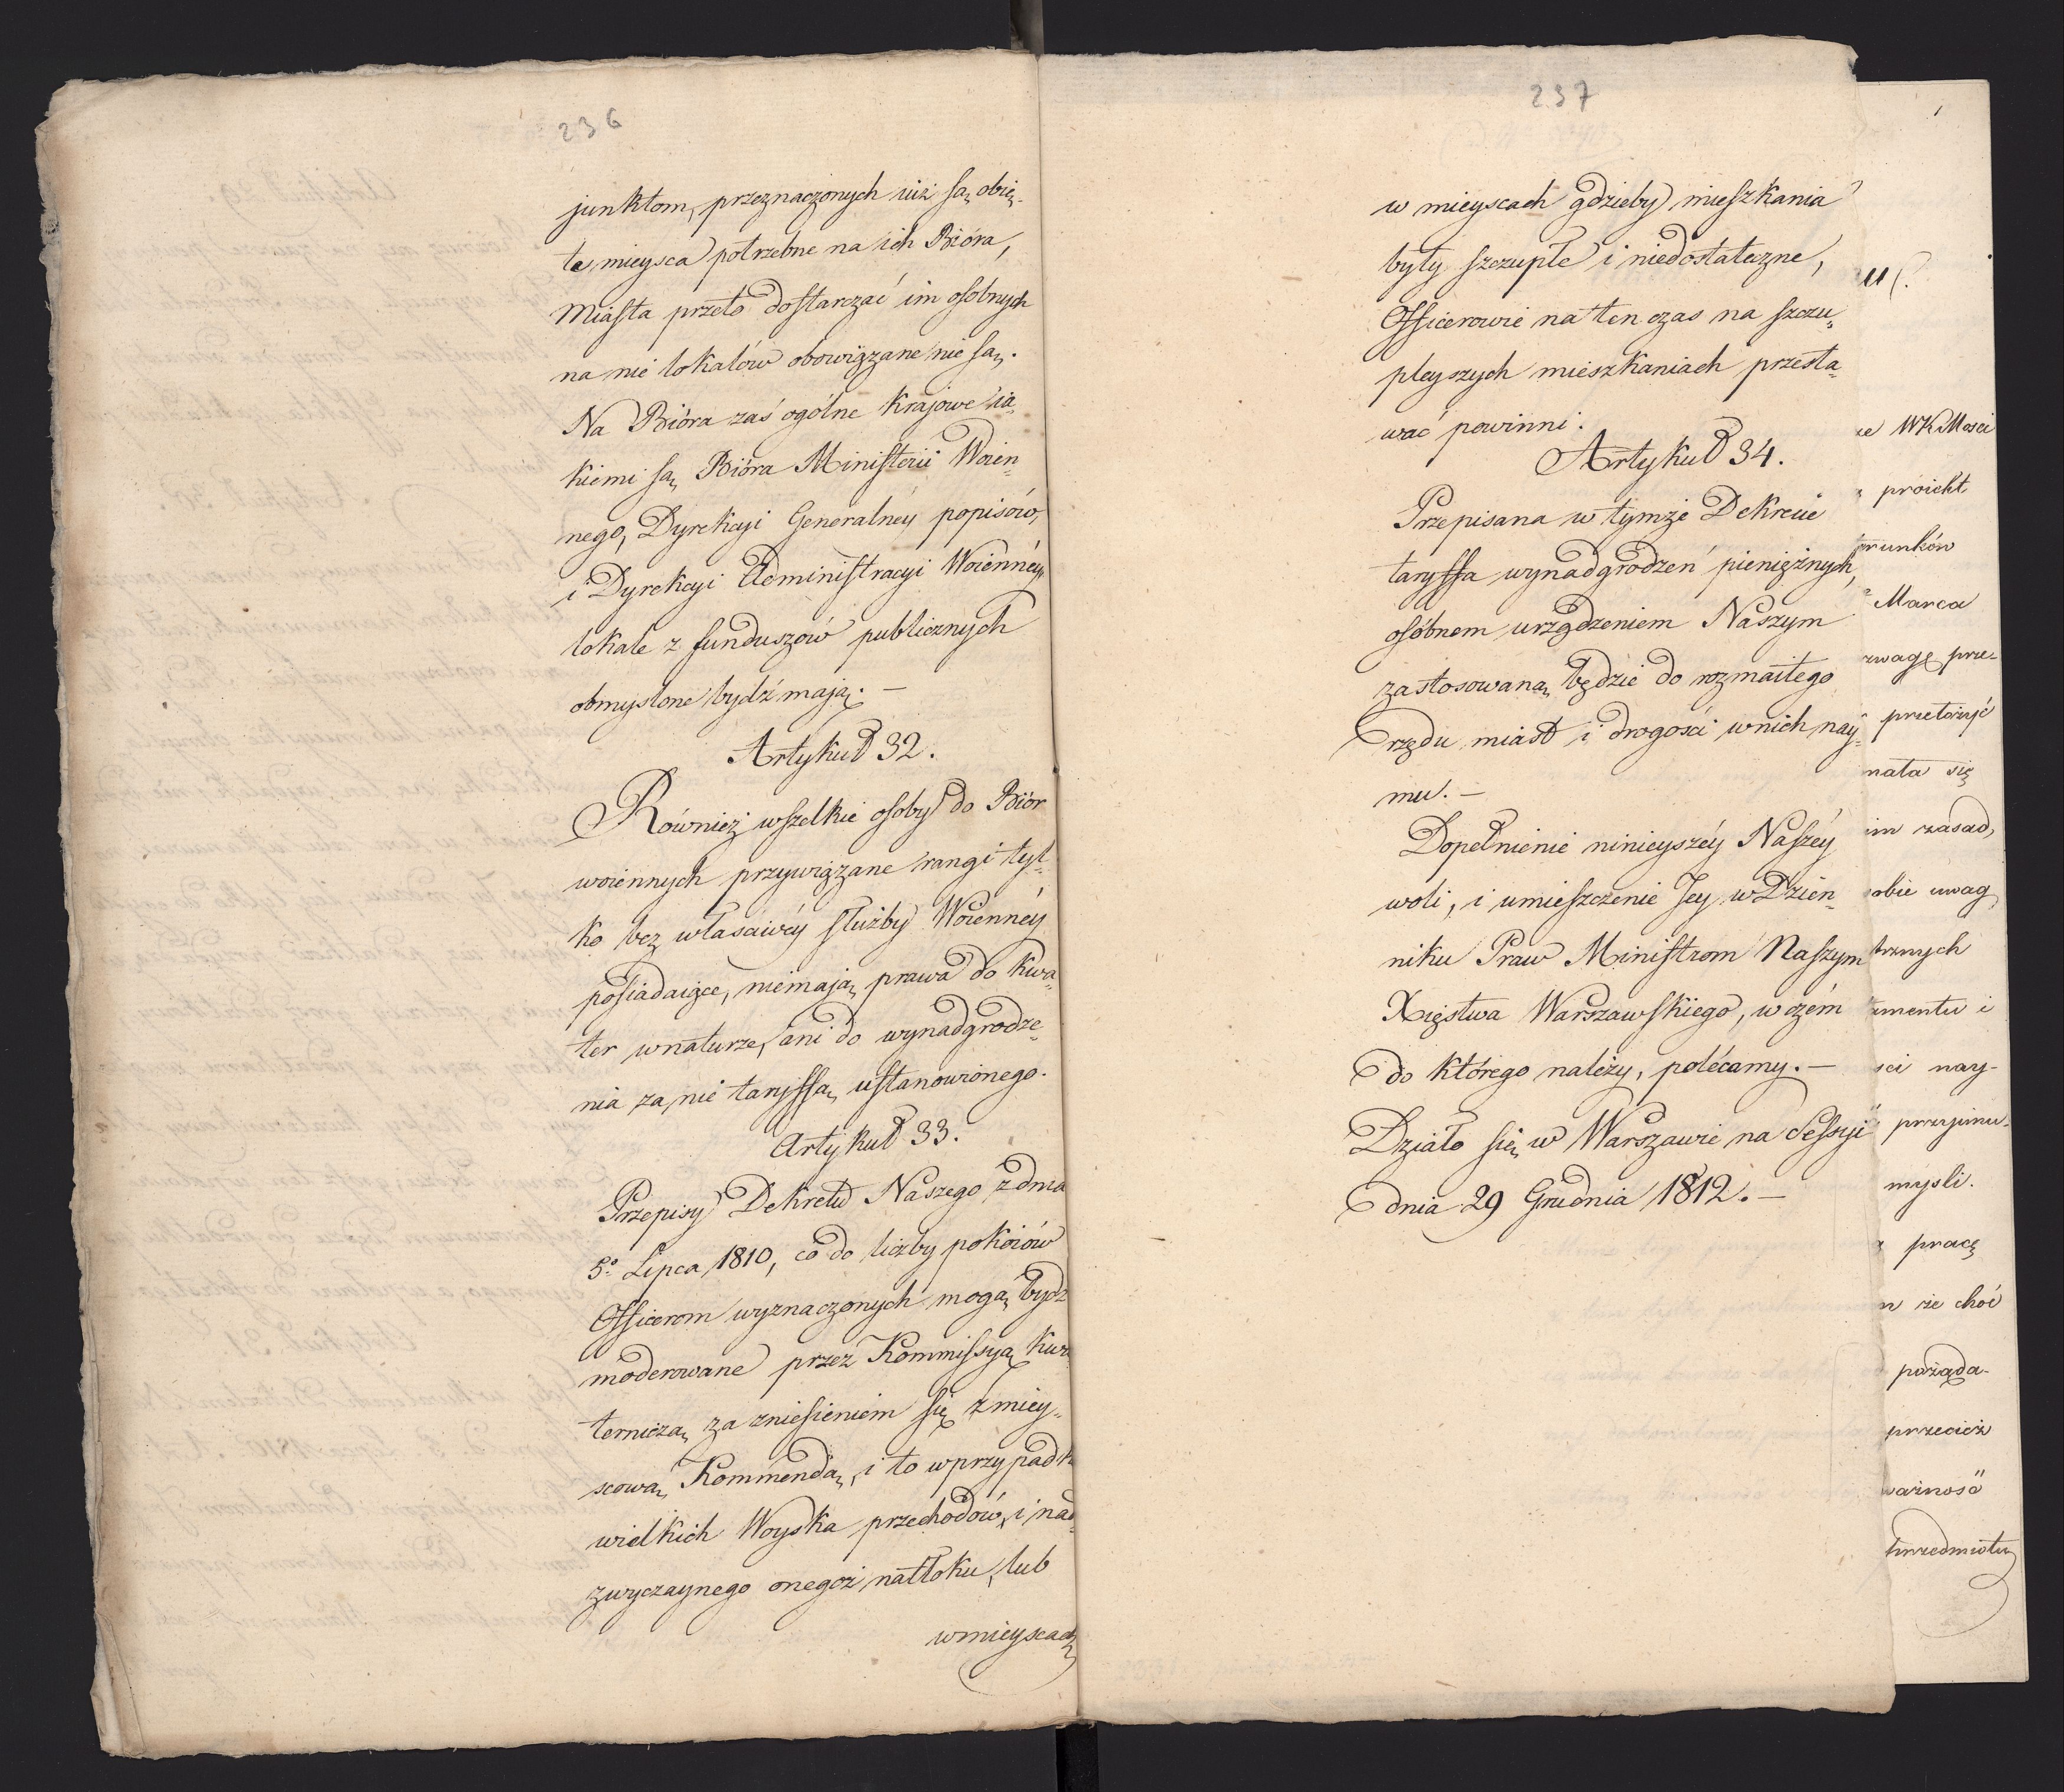 236
junktom, przeznaczonych iuż są obię-
te mieysca potrzebne na ich Bióra,
Miasta przeto dostarczać im osobnych
na nie lokalów obowiązane nie są.
Na Bióra zaś ogólne krajowe ia-
kiemi są Bióra Ministerii Woien-
nego, Dyrekcyi Generalnéy popisów,
i Dyrekcyi Administracyi Woiennéy
lokale z funduszów publicznych
obmyslone bydź mają. –
Artykuł 32.
Równiez wszelkie osoby do Biór
woiennych przywiązane rangi tyl-
ko bez własciwéy służby Woiennéy
posiadaiące, niemają prawa do kwa-
ter wnaturze, ani do wynadgrodze-
nia za nie taryffą ustanowionego.
Artykuł 33.
Przepisy Dekretu Naszego z dnia
5o Lipca 1810, co do liczby pokoiów
Officerom wyznaczonych mogą bydź
moderowane przez Kommissyą kwa-
terniczą za zniesieniem się z miey-
scową Kommendą, i to w przypadk
wielkich Woyska przechodów, i nad-
zwyczaynego onegoż natłoku, lub
wmieyscach
237
w mieyscach gdzieby mieszkania
były szczupłe i niedostateczne,
Officerowie na ten czas na szczu-
pleyszych mieszkaniach przesta-
wać powinni.
Artykuł 34.
Przepisana w tymże Dekrecie
taryffa wynadgrodzeń pieniężnych,
osóbnem urządzeniem Naszym
zastosowaną będzie do rozmaitego
rzędu miast i drogości w nich nay-
mu. –
Dopełnienie ninieyszéy Naszéy
woli, i umieszczenie Jey w Dzien-
niku Praw Ministrom Naszym
Xięstwa Warszawskiego, w czém
do którego należy, polécamy. –
Działo się w Warszawie na Sessyi
dnia 29 Grudnia 1812. –
WKMosci
proiekt
runków
Marca
wagę prze-
przełożyć
nała się
im zasad,
obie uwag
trznych
mentu i
ści nay-
przyimu-
mysli.
pracę
że choć
pożąda-
przecież
ważnosć
przedmiotu